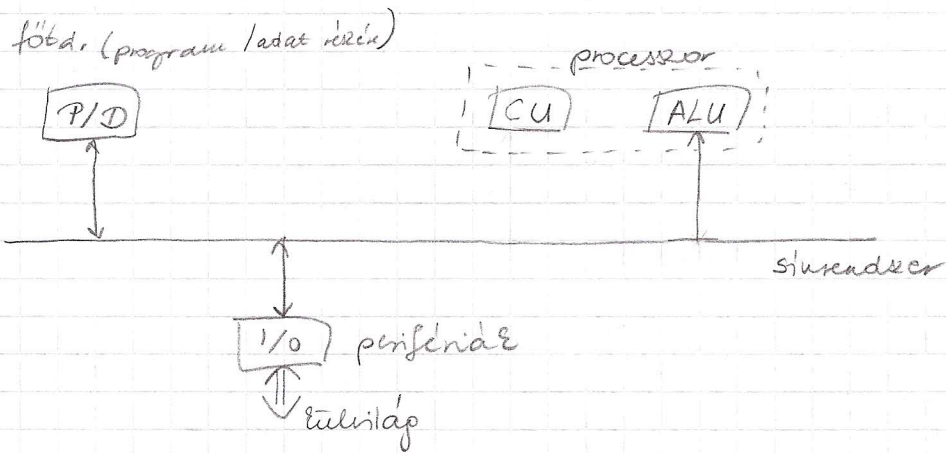 főtá. (program / adat részén)
processzor
P/D
CU
ALU
sínrendszer
I/O
perifériák
külvilág